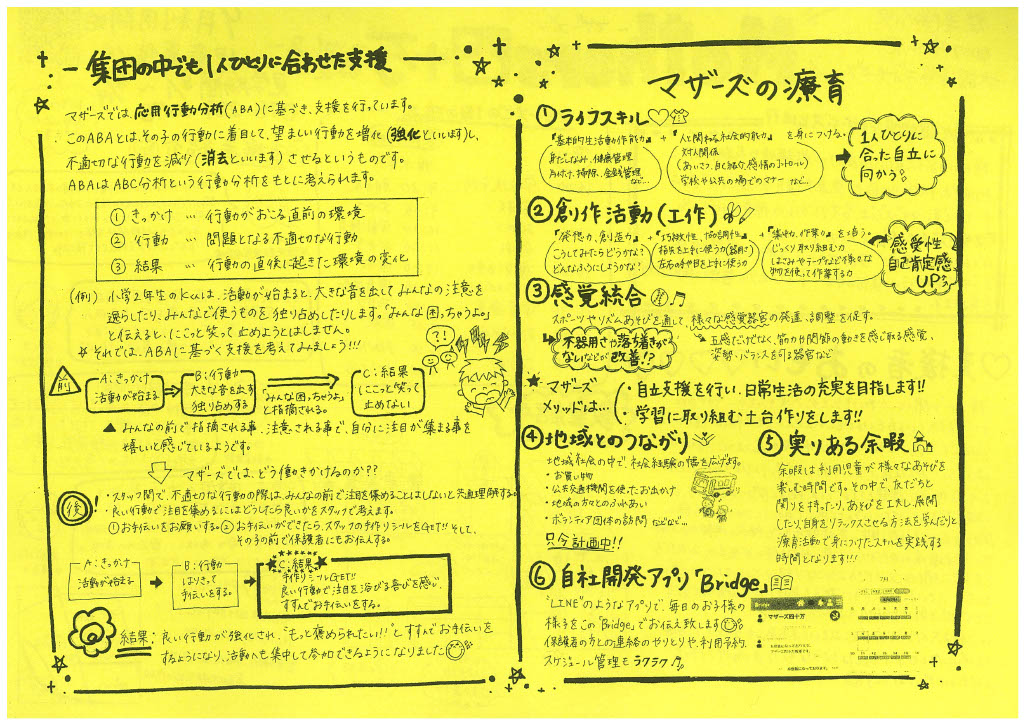 ― 集団の中でも1人ひとりに合わせた支援 ―
マザーズでは、応用行動分析(ABA)に基づき、支援を行っています。
このABAとは、その子の行動に着目して、望ましい行動を増化(強化といいます)し、
不適切な行動を減少(消去といいます)させるというものです。
ABAはABC分析という行動分析をもとに考えられます。
① きっかけ … 行動がおこる直前の環境
② 行動 … 問題となる不適切な行動
③ 結果 … 行動の直後に起きた環境の変化
(例) 小学2年生のKくんは、活動が始まると、大きな音を出してみんなの注意を
逸らしたり、みんなで使うものを独り占めしたりします。"みんな困っちゃうよ。"
と伝えると、にこっと笑って止めようとはしません。
☆ それでは、ABAに基づく支援を考えてみましょう!!!
?!
前
A:きっかけ
活動が始まる
B:行動
大きな音を出す
独り占めする
"みんな困っちゃうよ"
と指摘される。
C:結果
にこっと笑って
止めない
▲ みんなの前で指摘される事、注意される事で、自分に注目が集まる事を
嬉しいと感じているようです。
マザーズでは、どう働きかけるのか??
後
・スタッフ間で、不適切な行動の際は、みんなの前で注目を集めることはしないと共通理解する。
・良い行動で注目を集めるにはどうしたら良いかをスタッフで考えます。
①お手伝いをお願いする。②お手伝いができたら、スタッフの手作りシールをGET!! そして、
その子の前で保護者にもお伝えする。
A:きっかけ
活動が始まる
B:行動
はりきって
手伝いをする。
C:結果
手作りシールGET!!
良い行動で注目を浴びる喜びを感じ、
すすんでお手伝いをする。
結果:良い行動が強化され、"もっと褒められたい!!"とすすんでお手伝いを
するようになり、活動へも集中して参加できるようになりました
マザーズの療育
①ライフスキル
『基本的生活動作能力』 + 『人と関わる社会的能力』 を身につける。
身だしなみ、健康管理
片付け、掃除、金銭管理
など…
対人関係
(あいさつ、自己紹介、感情のコントロール)
学校や公共の場でのマナー など…
1人ひとりに
合った自立に
向かう。
②創作活動(工作)
『発想力、創造力』 + 『巧緻性、協調用性』 + 『集中力、作業力』 を培う。
こうしてみたらどうかな?
どんなふうにしようかな?
指先を上手に使う力(器用さ)
左右の手や目を上手に使う力
じっくり取り組む力
はさみやテープなど様々な
物を使って作業する力
感受性
自己肯定感
UP
③感覚統合
スポーツやリズムあそびを通して、様々な感覚器官の発達、調整を促す。
不器用さや落ち着きが
ないなどが改善!?
五感だけでなく、筋力や関節の動きを感じ取る感覚、
姿勢・バランスを司る器官など
★ マザーズ
メリッドは…
・自立支援を行い、日常生活の充実を目指します!!
・学習に取り組む土台作りをします!!
④地域とのつながり
地域社会の中で、社会経験の幅を広げます。
・お買い物
・公共交通機関を使ったお出かけ
・地域の方々とのふれあい
・ボランティア団体の訪問 などなど…
只今計画中!!
⑤実りある余暇
余暇は利用児童が様々なあそびを
楽しむ時間です。その中で、友だちと
関りを持ったり、あそびを工夫し、展開
したり、自身をリラックスさせる方法を学んだりと
療育活動で身につけたスキルを実践する
時間となります!!!
⑥自社開発アプリ「Bridge」
"LINE"のようなアプリで、毎日のお子様の
様子をこの"Bridge"でお伝え致します
保護者の方との連絡のやりとりや、利用予約、
スケジュール管理もラクラク♪
マザーズ四十万